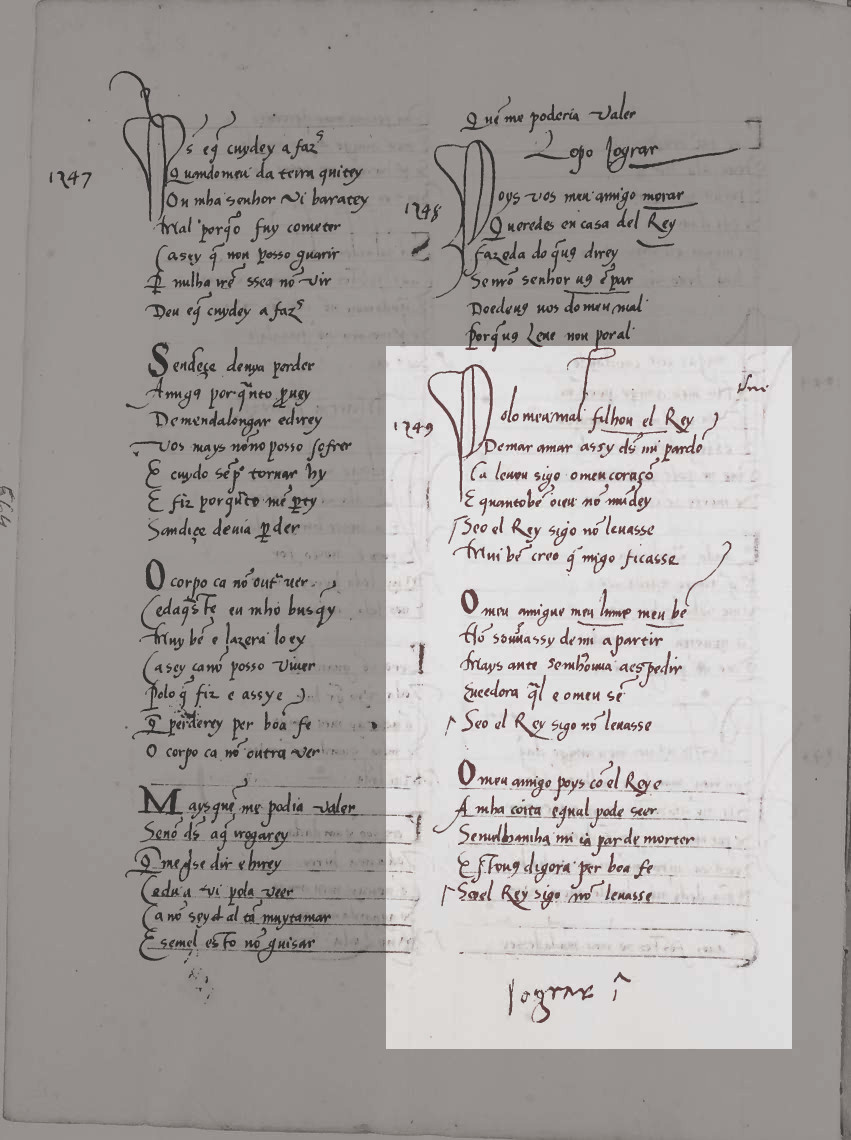 1247
Ꝑs eq̄ cuydey a faz̄
Quandomeu da terra quitey
Ou mha senhor vi baratey
Mal porq̄o fuy cometer
Ca sey q̄ non posso guarir
nulha ssea nō vir
Deu eq̄ cuydey a faz̄
Sendeçe denya perder
Demendalongar edirey
Vos mays nōno posso sofrer
E cuydo sēp̄ tornar hy
E fiz
Sandiçe deuia ꝑder
O corpo ca nō outr̄ uer
eu mho busq̄y
Muy bē e lazera loey
Ca sey canō posso viuer
Polo q̄ fiz e assy e
Q̄ perderey per boa fe
O corpo ca nō outra ver
Maysquē me podia valer
Senō ds̄ aq̄ irogarey
me
pola veer
Ca nō seyd al tā muytamar
E semel esto nō guisar
Quē me poderia valer
Lopo Jograr
1248
Poys vos meu amigo morar
Queredes en casa del Rey
fazeda do q̄uꝯ direy
Se nrō senhor uꝯ ēpar
Doedeuꝯ uos do meu mal
Porq̄uꝯ lene non poral
1249
Polo meu mal filhou el Rey
Demar amar assy ds̄ mi pardō
Ca leuou sigo o meu coraçō
E quantobē oieu nō mūdey
Seo el Rey sigo nō leuasse
Mui bē creo q̄ migo ficasse
O meu amigue meu lume meu bē
Nō assy de mi a partir
Mays ante aespedir
q̄l e o meu sē
Seo el Rey sigo nō leuasse
O meu amigo poys cō el Rey e
A mha coita egual pode seer
mi parde morrer
digora per boa fe
Seoel Rey sigo nō leuasse
Jograr